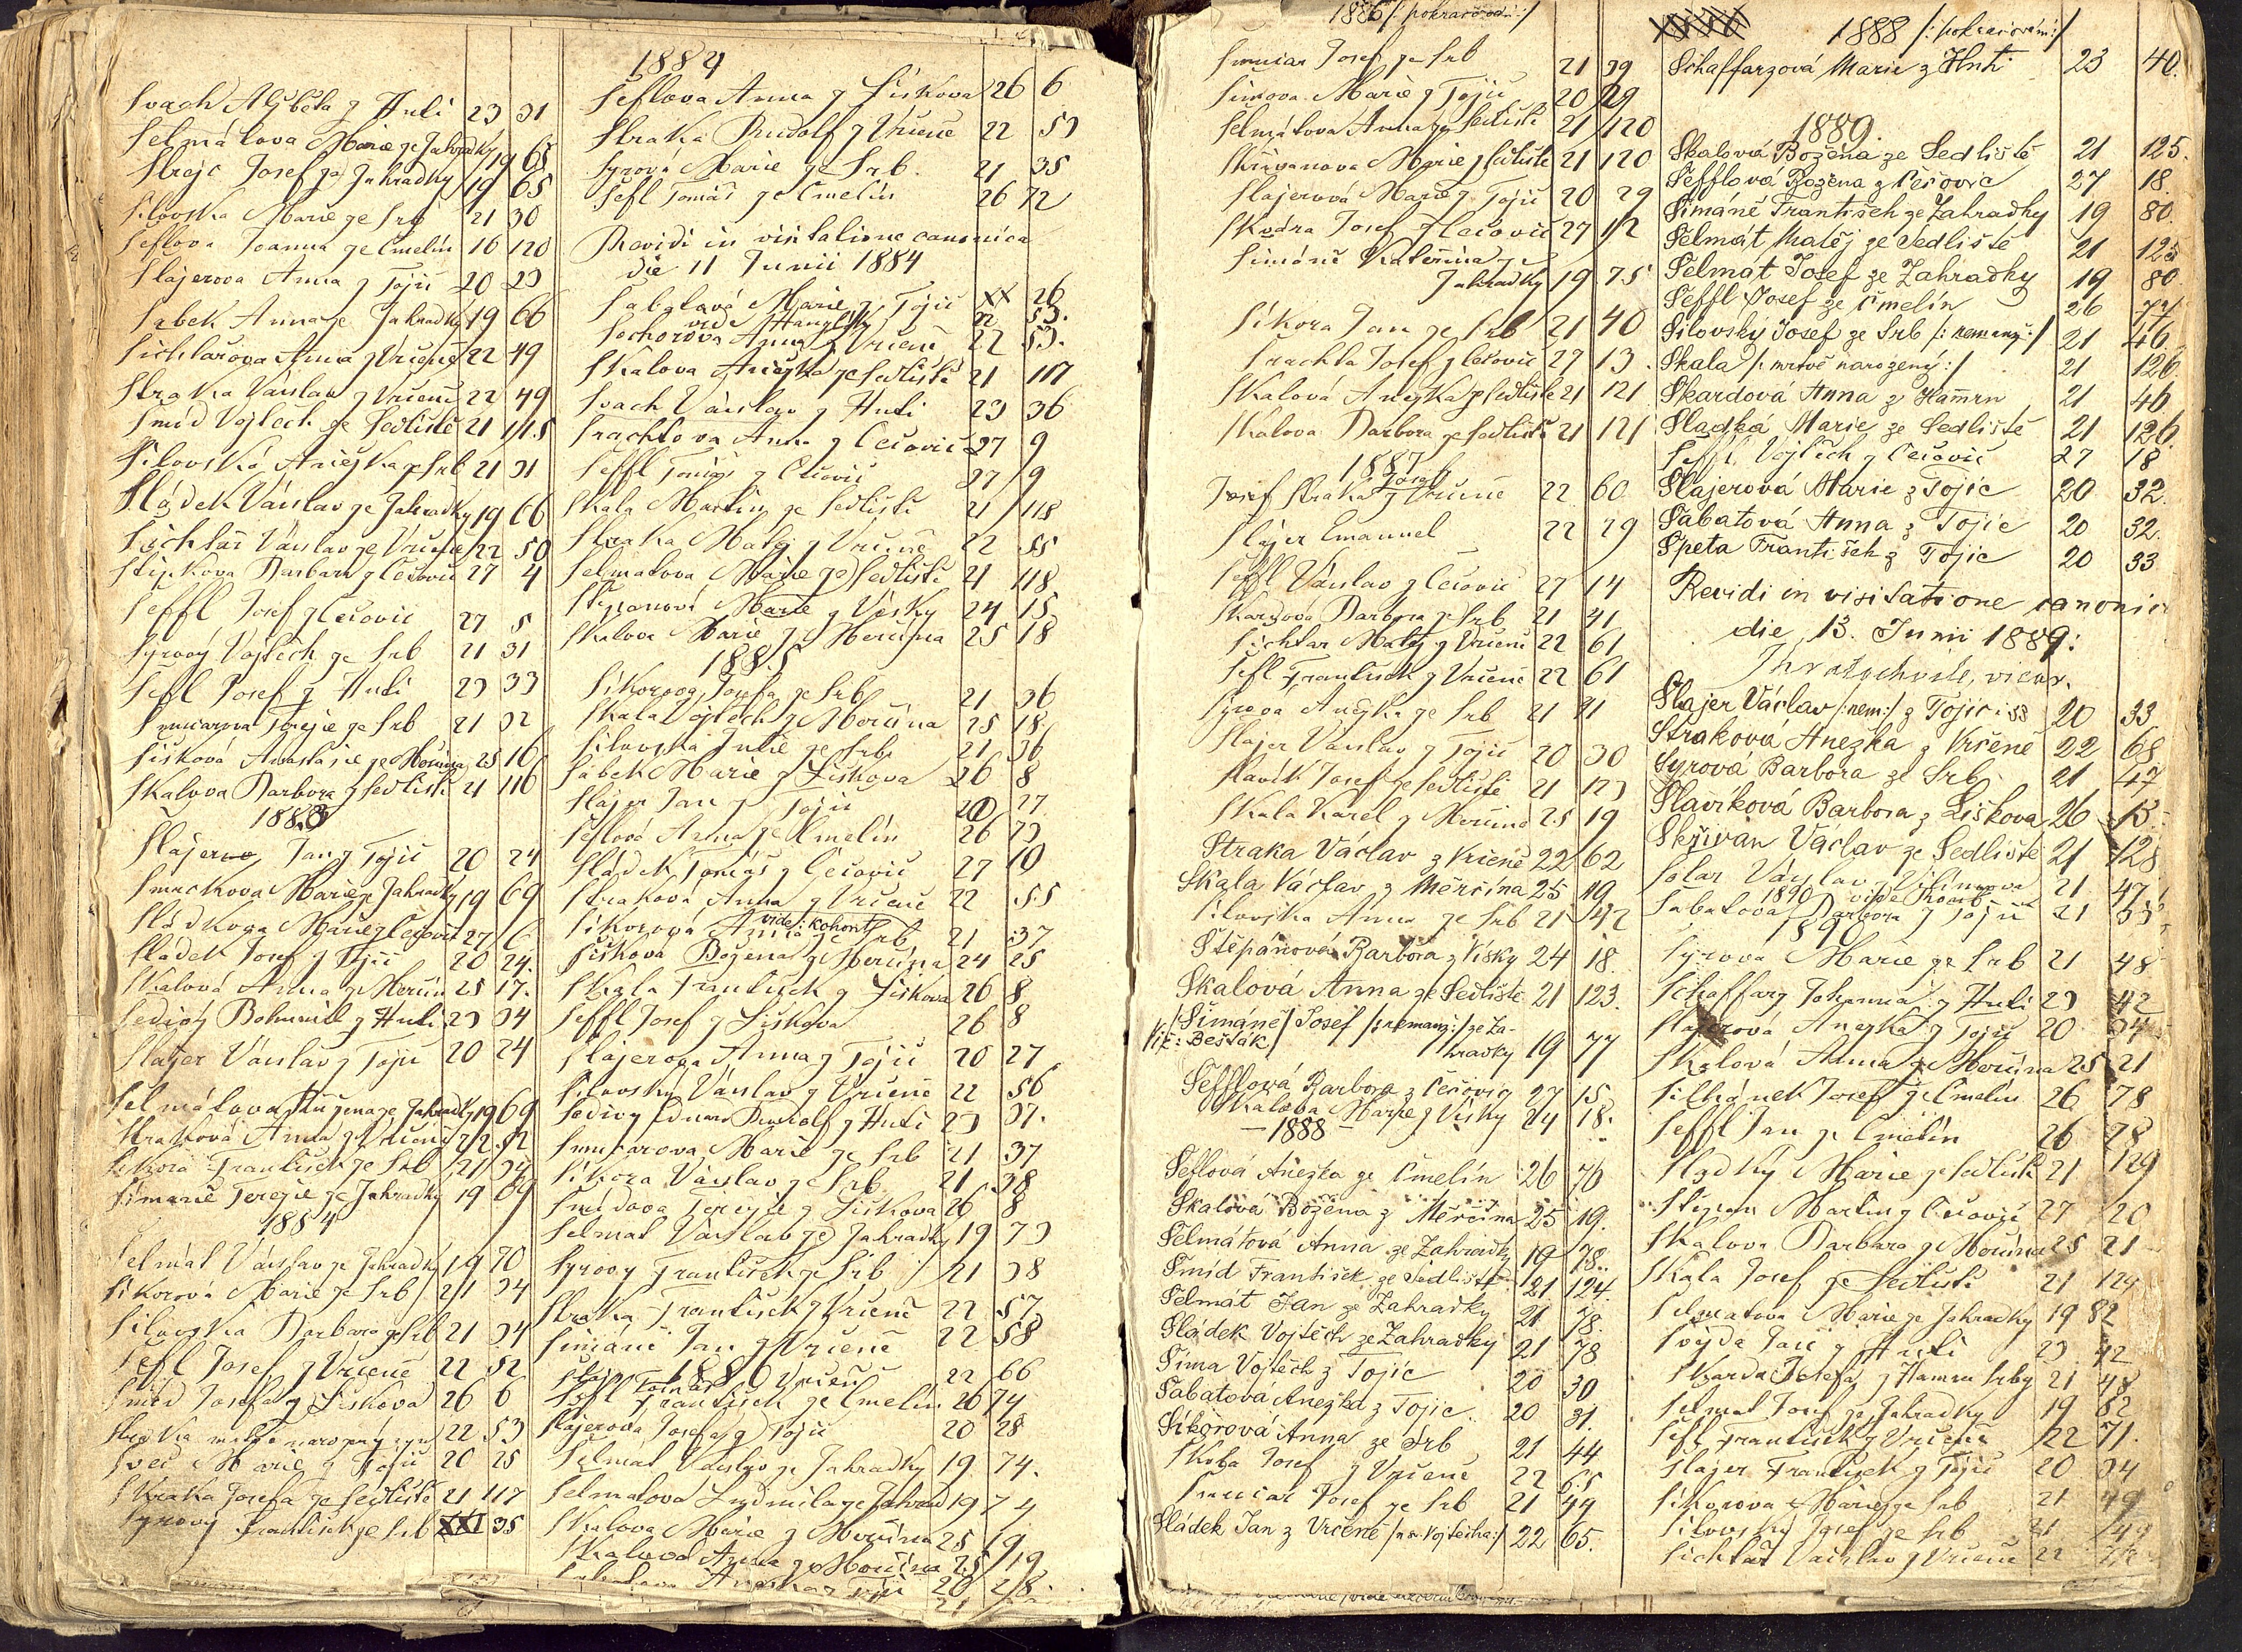 Svach Alžběta z Hutí 23 31
Selmátova Marie ze Zahrádky 19 65
Strejc Josef ze Zahrádky 19 65
Silovska Marie ze Srb 21 30
Šeflova Joanna ze Čmelín 16 120
Šlajerova Anna z Tojic 20 23
Sabek Anna ze Zahrádky 19 66
Sichlařova Anna z Vrčeně 22 49
Straka Václav z Vrčeně 22 49
Šmíd Vojtěch ze Sedliště 21 115
Silovská Anežka ze Srb 21 31
Sládek Václav ze Zahrádky 19 66
Sichlař Václav z Vrčeně 22 50
Barbara z Čečovic 27 4
Šeffl Josef z Čečovic 27 5
Syrový Vojtěch ze Srb 21 31
Šefl Josef z Hutí 23 33
Terezie ze Srb 21 32
Šišková Anastasie ze Měrčína 25 16
Skalova Barbora z Sedliště 21 116
1883
Šlajer Jan z Tojic 20 24
Marie ze Zahrádky 19 69
Sládkova Marie z Čečovic 27 6
Sládek Josef z Tojic 20 24.
Skalová Anna z Měrčín 25 17.
Šedivý Bohumil z Hutí 23 34
Šlajer Václav z Tojic 20 24
Selmátova Růžena ze Zahrádky 19 69
Straková Anna z Vrčeně 22 52
Sikora František ze Srb 21 34
Šimáně Terezie ze Zahrádky 19 69
1884
Selmát Václav ze Zahrádky 19 70
Sikorová Marie ze Srb 21 34
Silovska Barbara ze Srb 21 34
Šefl Josef z Vrčeně 22 52
Šmíd Josefa z Liškova 26 6
Straka mrtvě narozený syn 22 53
Švec Marie z Tojic 20 25
Straka Josefa ze Sedliště 21 117
Syrový František ze Srb XXI 35
1884
Šeflova Anna z Liškova 26 6
Straka Rudolf z Vrčeně 22 53
Syrová Marie ze Srb. 21 35
Šefl Tomáš ze Čmelín 26 72
Revidi in visitatione canonica
die 11 Junii 1884
Marie z Tojic XX 26
vid 22 53.
Sochorova Anna z Vrčeně 22 53.
Skalova Anežka ze Sedliště 21 117
Svach Václav z Hutí 23 36
Srachtova Anna z Čečovic 27 9
Šeffl Tomáš z Čečovic 27 9
Skala Martin ze Sedliště 21 118
Straka Matěj z Vrčeně 22 55
Selmatova Marie ze Sedliště 21 118
Štěpanová Marie z Vísky 24 15
Skalova Marie z Měrčína 25 18
1885
Sikorova Josefa ze Srb 21 36
Skala Vojtěch z Měrčína 25 18
Silovska Julie ze Srb 21 36
Sabek Marie z Liškova 26 8
Šlajer Jan z Tojic 20 27
Šeflová Anna ze Čmelín 26 73
Sládek Tomáš z Čečovic 27 10
Straková Anna z Vrčeně 22 55
vide: Kohout
Sikorová Anna ze Srb 21 37
Šišková Božena z Měrčína 24 25
Skala František z Liškova 26 8
Šeffl Josef z Liškova 26 8
Šlajerova Anna z Tojic 20 27
Silovský Václav z Vrčeně 22 56
Šedivý Eduard Rudolf z Hutí 23 37.
Marie ze Srb 21 37
Sikora Václav ze Srb 21 38
Šmídova Terezie z Liškova 26 8
Selmat Václav ze Zahrádky 19 73
Syrový František ze Srb 21 38
Straka František z Vrčeně 22 57
Šimáně Jan z Vrčeně 22 58
1886
Vrčeň 22 66
Šefl František ze Čmelín 26 74
Šlajerova Josefa z Tojic 20 28
Selmát Václav ze Zahrádky 19 74.
Selmatova Ludmila ze Zahrad 19 74
Skalova Marie z Měrčína 25 19
Skalova Anna z Měrčína 25 19
Anežka z Tojic 20 28.
1886 /: pokračování :/
Josef ze Srb 21 39
Šímova Marie z Tojic 20 29
Selmátova Anna ze Sedliště 21 120
Skřivanova Marie z Sedliště 21 120
Šlajerová Marie z Tojic 20 29
Josef z Čečovic 27 12
Šimáně Kateřina ze
Zahrádky 19 75
Sikora Jan ze Srb 21 40
Srachta Josef z Čečovic 27 13.
Skalová Anežka z Sedliště 21 121
Skalova Barbora ze Sedliště 21 121
1887
Josef Straka z Vrčeně 22 60
Šlajer Emanuel 22 29
Šeffl Václav z Čečovic 27 14
Skardová Barbora ze Srb 21 41
Sichlar Matěj z Vrčeně 22 61
Šefl František z Vrčeně 22 61
Syrova Anežka ze Srb 21 41
Šlajer Václav z Tojic 20 30
Slavík Josef ze Sedliště 21 123
Skala Karel z Měrčína 25 19
Straka Václav z Vrčeně 22 62
Skala Václav z Měrčína 25 19
Silovska Anna ze Srb 21 42
Štěpánová Barbora z Vísky 24 18
Skalová Anna ze Sedliště 21 123.
/Šimáně/ Josef /: nemanž :/ ze Za-
Viz: Bešťák/ hrádky 19 77
Šefflová Barbora z Čečovic 27 15
Skalova Marie z Vísky 24 18.
- 1888 -
Šeflová Anežka ze Čmelín 26 76
Skalová Božena z Měrčína 25 19.
Selmátová Anna ze Zahrádky 19 78.
Šmíd František ze Sedliště 21 124.
Selmát Jan ze Zahrádky 21 78.
Sládek Vojtěch ze Zahrádky 21 78
Šíma Vojtěch z Tojic 20 30
Šabatova Anežka z Tojic 20 31.
Síkorová Anna ze Srb 21 44
Skoba Josef z Vrčeně 22 65
Josef ze Srb 21 44
Sládek Jan z Vrčeně /: Vojtěcha :/ 22 65.
1888 /: pokračování :/
Schaffarzová Marie z Hutí 23 40.
1889.
Skalová Božena ze Sedliště 21 125.
Šefflová Božena z Čečovic 27 18.
Šimáně František ze Zahrádky 19 80.
Selmát Matěj ze Sedliště 21 125
Selmát Josef ze Zahrádky 19 80
Šeffl Josef ze Čmelín 26 77
Silovský Josef ze Srb /: nemanž :/ 21 46.
Skala /: mrtvě narozený :/ 21 126
Skardová Anna z Hamrn 21 46
Sladká Marie ze Sedliště 21 126.
Šeffl Vojtěch z Čečovic 27 18
Šlajerová Marie z Tojic 20 32.
Šabatová Anna z Tojic 20 32.
Speta František z Tojic 20 33
Revidi in visitatione canonic
die 13. Junii 1889:
vicar.
Šlajer Václav /: nem :/ z Tojic i 33 20 33
Straková Anežka z Vrčeně 22 68
Syrová Barbora ze Srb 21 47
Slavíková Barbora z Liškova 26 13
Skřivan Václav ze Sedliště 21 128
Solar Václav 21 47
1890 vide
Šabatova Barbora z Tojic 21 33
1890
Syrova Marie ze Srb 21 48
Schaffarz Johanna z Hutí 23 42
Šlajerová Anežka z Tojic 20 34
Skalová Anna z Měrčína 25 21
Silhánek Josef ze Čmelín 26 78
Šeffl Jan ze Čmelín 26 78
Sladký Marie ze Sedliště 21 129
Štěpan Martin z Čečovic 27 20
Skalova Barbara z Měrčína 25 21
Skala Josef ze Sedliště 21 129
Selmatova Marie ze Zahrádky 19 82
z Hutí 23 42
Skarda Josefa z Hamru Srby 21 48
Selmat Josef ze Zahrádky 19 82
Šefl František z Vrčeně 22 71.
Šlajer František z Tojic 20 34
Sikorova Marie ze Srb 21 49
Silovský Josef ze Srb 21 49
Sichlař Václav z Vrčeně 22 72